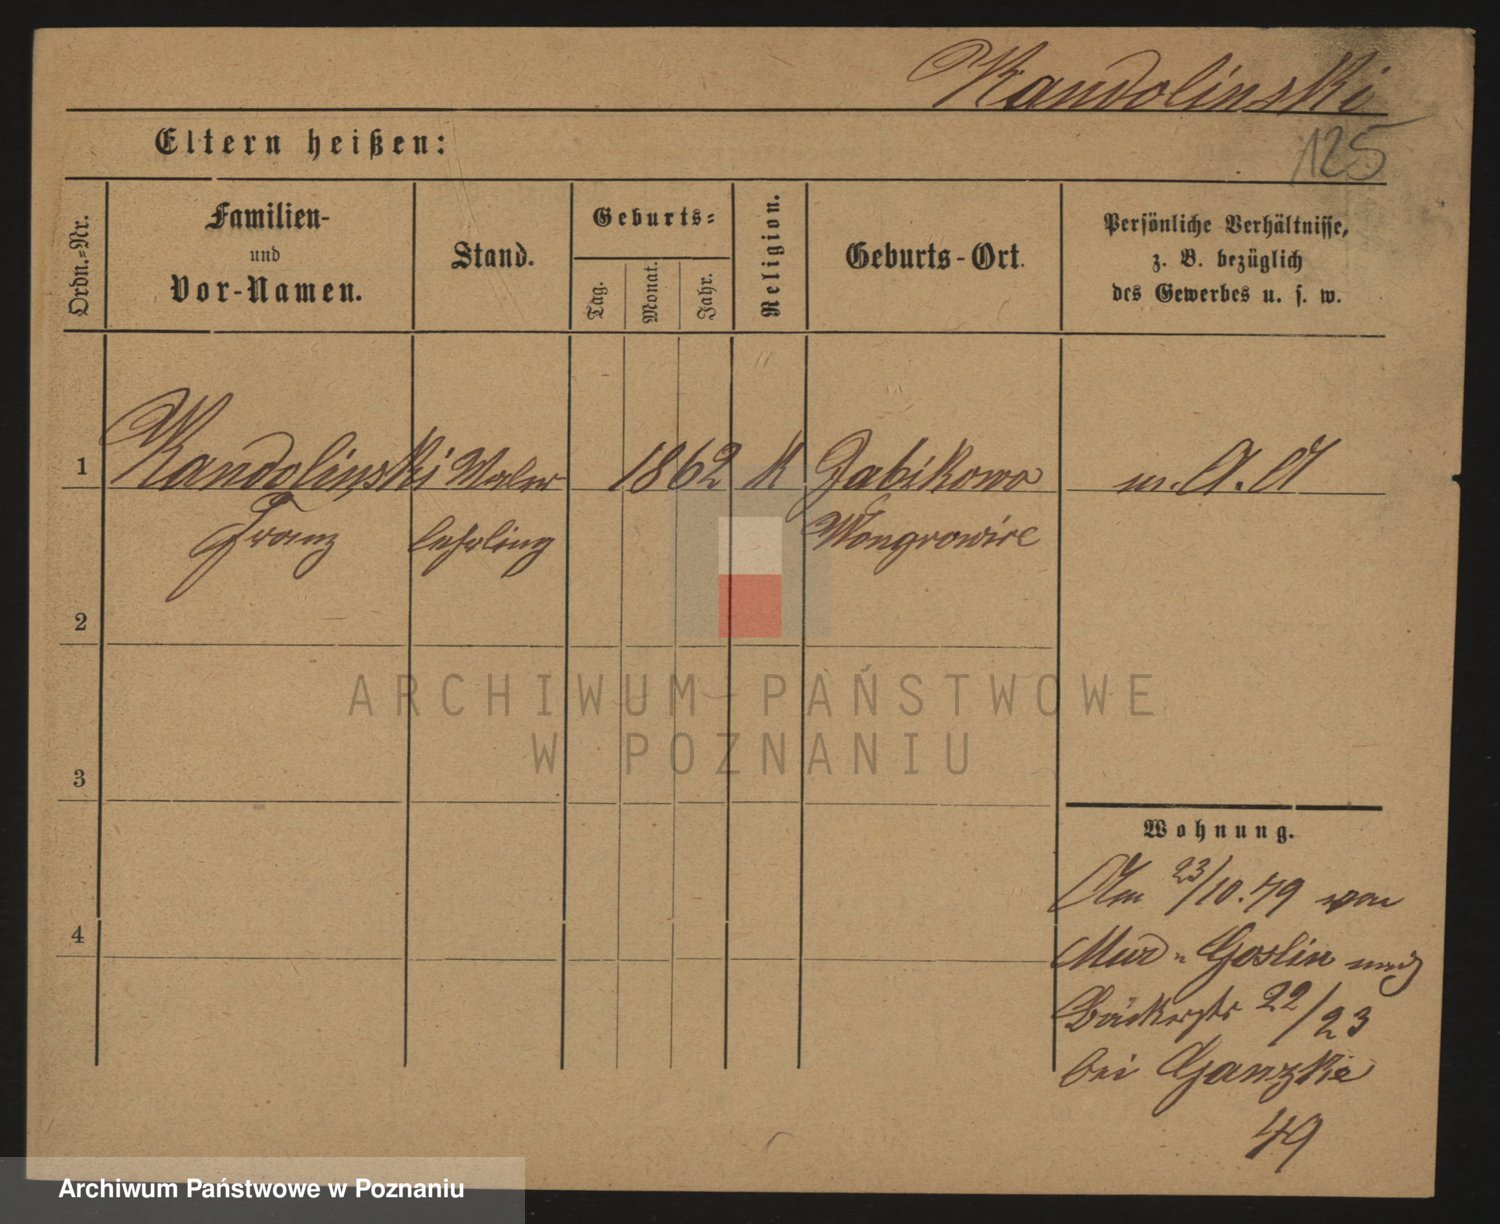 Kandolinski
125
Eltern heißen:
Ordn.-Nr.
Familien-
und
Vor-Namen.
Stand.
Geburts-
Tag.
Monat.
Jahr.
Religion.
Geburts-Ort.
Persönliche Verhältnisse,
z. B. bezüglich
des Gewerbes u. s. w.
1 Kandolinski Maler 1862 K Jabikowo m. A. A
Franz lehrling Wongrowice
2
ARCHIWUM PAŃSTWOWE
W POZNANIU
3
Wohnung.
Am 23/10.79 von
4
Mur. Goslin nach
Bäckerstr 22/23
bei Ganzke
49
Archiwum Państwowe w Poznaniu